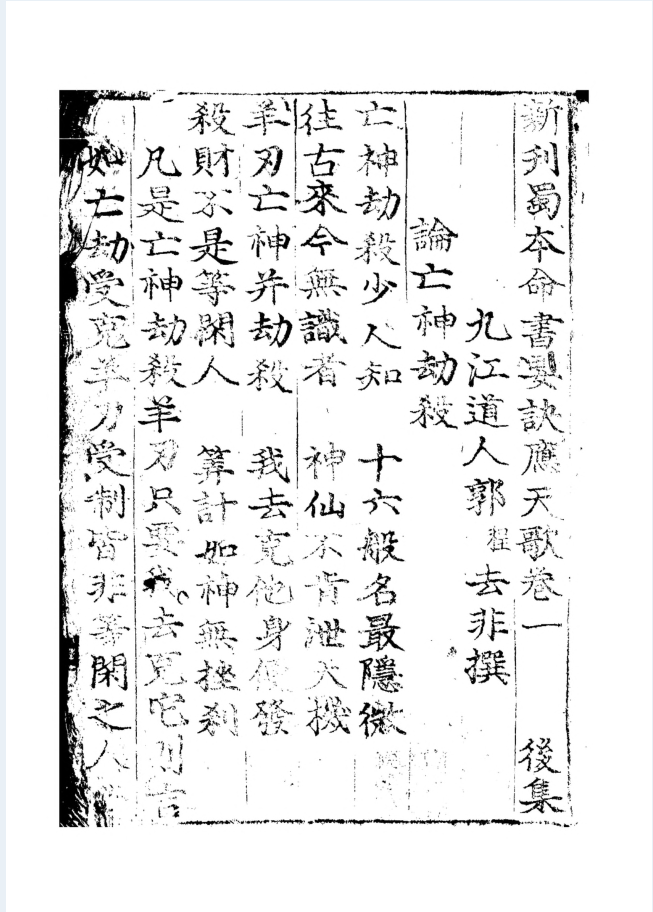 新刋蜀本命書要訣應天歌卷一 後集
九江道人郭 程 去非撰
論亡神劫殺
亡神劫殺少人知 十六般名最隱微
往古來今無識者 神仙不肯泄天機
羊刃亡神并劫殺 我去克他身便發
殺財不是等閑人 筭計如神無挫刹
凡是亡神劫殺羊刃只要我去克它則吉
如亡劫受克羊刃受制皆非等閑之人